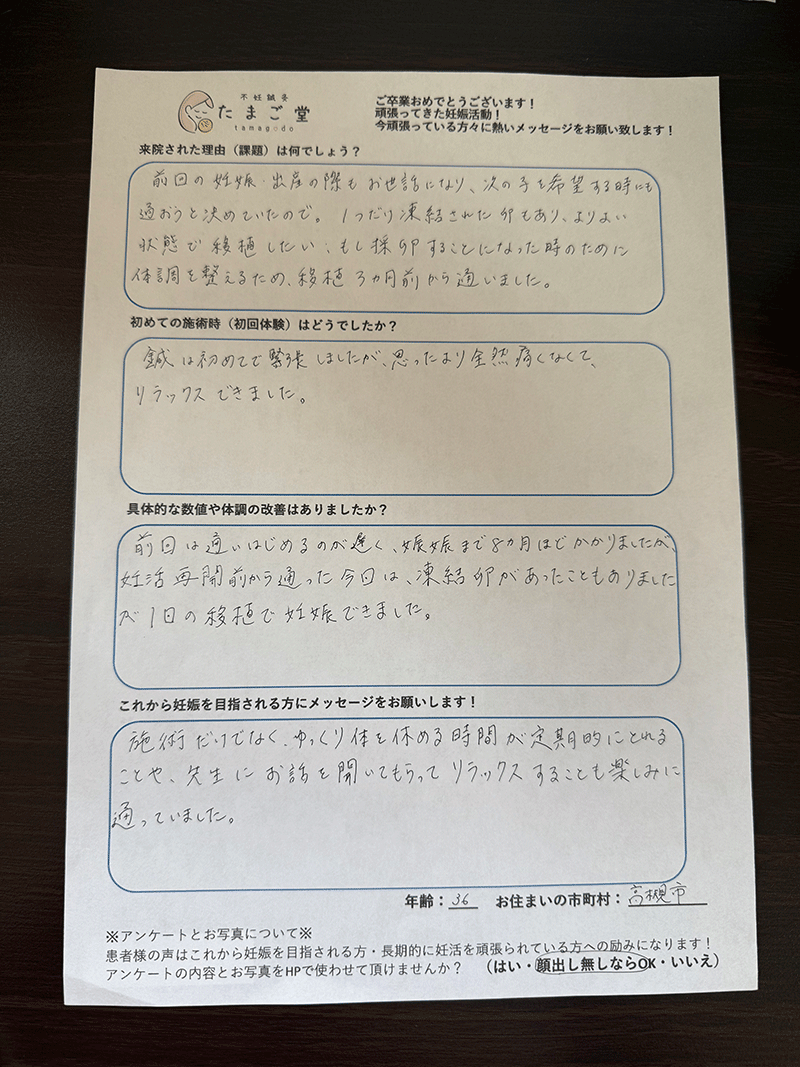 不妊鍼灸
たまご堂
tamagodo
ご卒業おめでとうございます！
頑張ってきた妊娠活動！
今頑張っている方々に熱いメッセージをお願い致します！
来院された理由（課題）は何でしょう？
前回の妊娠・出産の際もお世話になり、次の子を希望する時にも
通おうと決めていたので。1つだけ凍結された卵もあり、よりよい
状態で移植したい、もし採卵することになった時のために
体調を整えるため、移植3ヵ月前から通いました。
初めての施術時（初回体験）はどうでしたか？
鍼は初めてで緊張しましたが、思ったより全然痛くなくて、
リラックスできました。
具体的な数値や体調の改善はありましたか？
前回は通いはじめるのが遅く、妊娠まで8ヵ月ほどかかりましたが、
妊活再開前から通った今回は、凍結卵があったこともありました
が1日の移植で妊娠できました。
これから妊娠を目指される方にメッセージをお願いします！
施術だけでなく、ゆっくり体を休める時間が定期的にとれる
ことや、先生にお話を聞いてもらってリラックスすることも楽しみに
通っていました。
年齢：36 お住まいの市町村：高槻市
※アンケートとお写真について※
患者様の声はこれから妊娠を目指される方・長期的に妊活を頑張られている方への励みになります！
アンケートの内容とお写真をHPで使わせて頂けませんか？ （はい・顔出し無しならOK・いいえ）